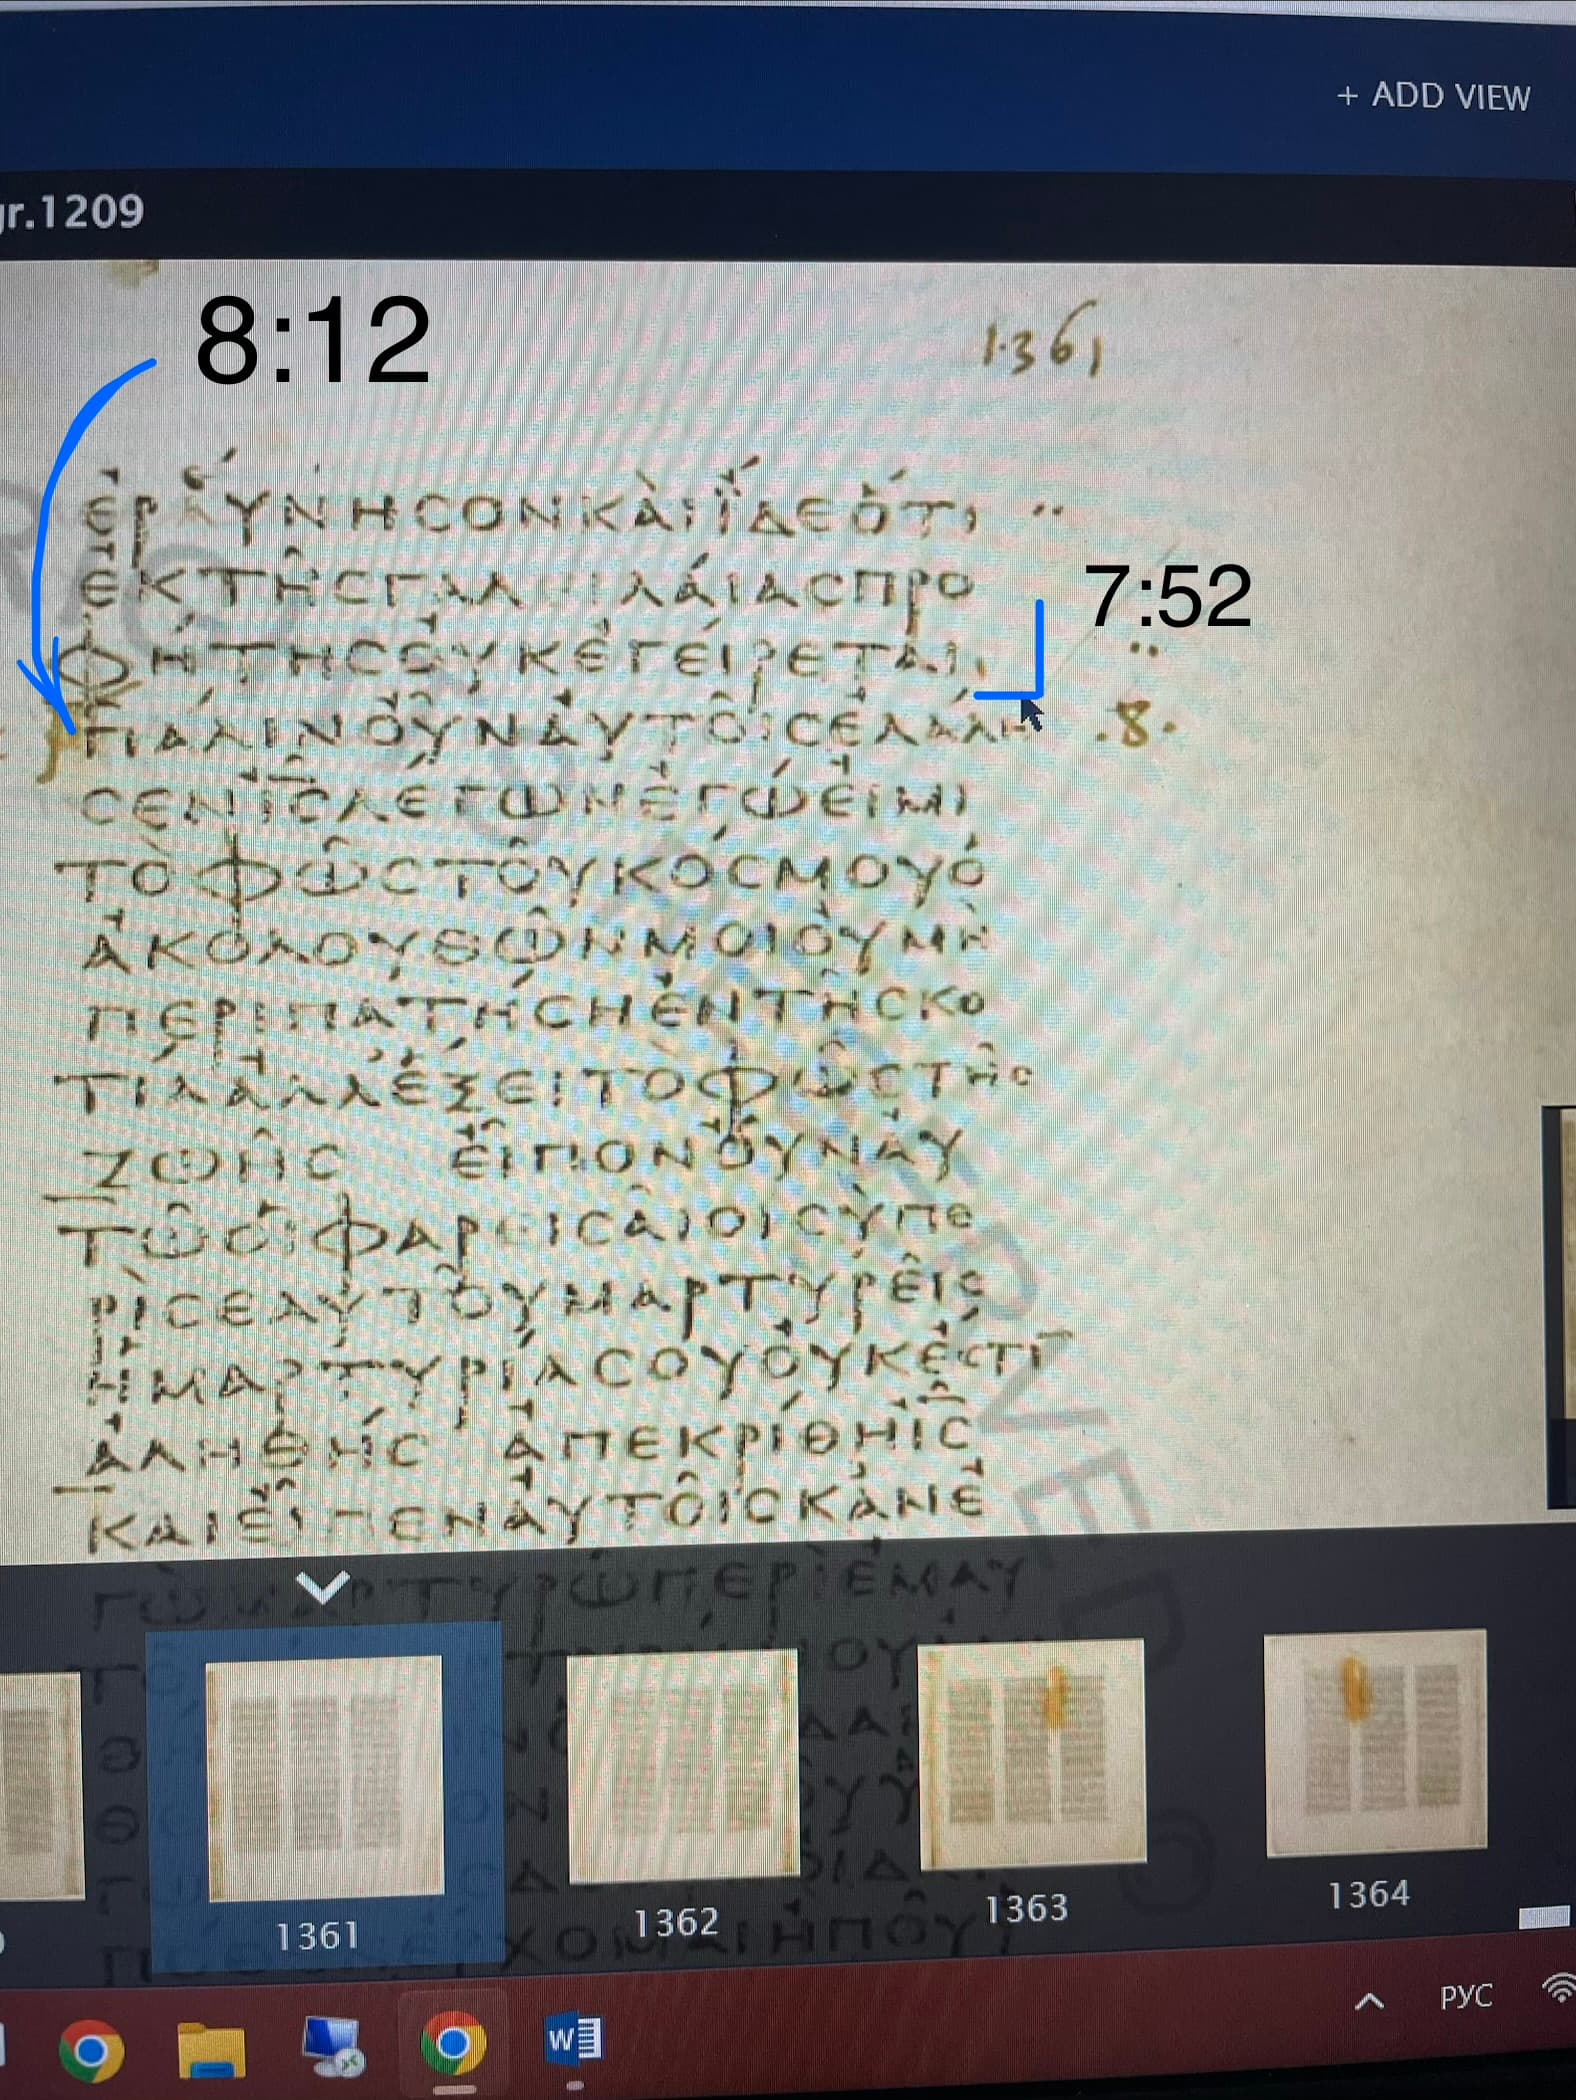 + ADD VIEW
gr.1209
8:12
1361
ἐρΑΎΝΗϹΟΝΚΑὶΪ́ΔΕὅΤΙ
ἐΚΤῆϹΓΑΛΙΛΆΙΑϹΠΡΟ
7:52
ΦΉΤΗϹὀΥΚἐΓΕΊΡΕΤΑΙ
ΠΆΛΙΝὀ͂ΥΝἀΥΤΟ͂ΙϹἐΛΆΛΗ
.8.
ϹΕΝΙ̅Ϲ̅ΛΈΓΩΝἘΓΏἘΙΜΙ
ΤῸΦΩ͂ϹΤΟ͂ΥΚΌϹΜΟΥὉ
ἈΚΟΛΟΥΘΩ͂ΝΜΟΙὈΥΜῊ
ΠΕΡΙΠΑΤΉϹΗἘΝΤΗ͂ϹΚΟ
ΤΊΑἈΛΛἝΞΕΙΤῸΦΩ͂ϹΤΗ͂Ϲ
ΖΩΗ͂Ϲ ἘΙ͂ΠΟΝὈΥ͂ΝἈΥ
ΤΩ͂ὉΙΦΑΡΕΙϹΑ͂ΙΟΙϹῪΠΕ
ΡῚϹΕΑΥΤΟ͂ΥΜΑΡΤΥΡΕ͂ΙϹ
ἩΜΑΡΤΥΡΊΑϹΟΥὈΥΚἜϹΤΙ̅
ἈΛΗΘΉϹ ἈΠΕΚΡΊΘΗΙ̅Ϲ̅
ΚΑΙἘΙ͂ΠΕΝἈΥΤΟ͂ΙϹΚἈΝἘ
ΓῺΜΑΡΤΥΡΩ͂ΠΕΡῚἘΜΑΥ
1361
1362
1363
1364
РУС